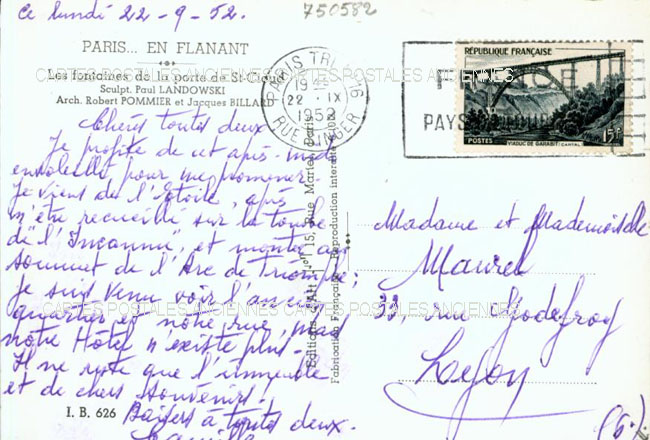 Ce lundi 22-9-52.
750582
PARIS... EN FLANANT
Les fontaines de la porte de St-Cloud
Sculpt. Paul LANDOWSKI
Arch. Robert POMMIER et Jacques BILLARD
CARTES POSTALES ANCIENNES CARTES POSTALES ANCIENNES
PARIS TRI 96
19
22 IX
1952
RUE SINGER
PAYS
RÉPUBLIQUE FRANÇAISE
15F
POSTES VIADUC DE GARABIT-CANTAL
Chères toutes deux.
Je profite de cet après-midi
ensoleillé pour me promener.
Je viens de l'Etoile, après
m'être recueilli sur la tombe
de "l'Inconnu", et monter au
sommet de l'Arc de Triomphe;
je suis venu voir l'ancien
quartier et notre rue, mais
notre Hôtel n'existe plus.
Il ne reste que l'immeuble
et de chers souvenirs.
Baisers à toutes deux.
I. B. 626
15, Rue Martel, Paris
Fabrication Française - Reproduction interdite
Madame et Mademoiselle
Maurel
33, rue Godefroy
Lyon
(6°)
CARTES POSTALES ANCIENNES CARTES POSTALES ANCIENNES